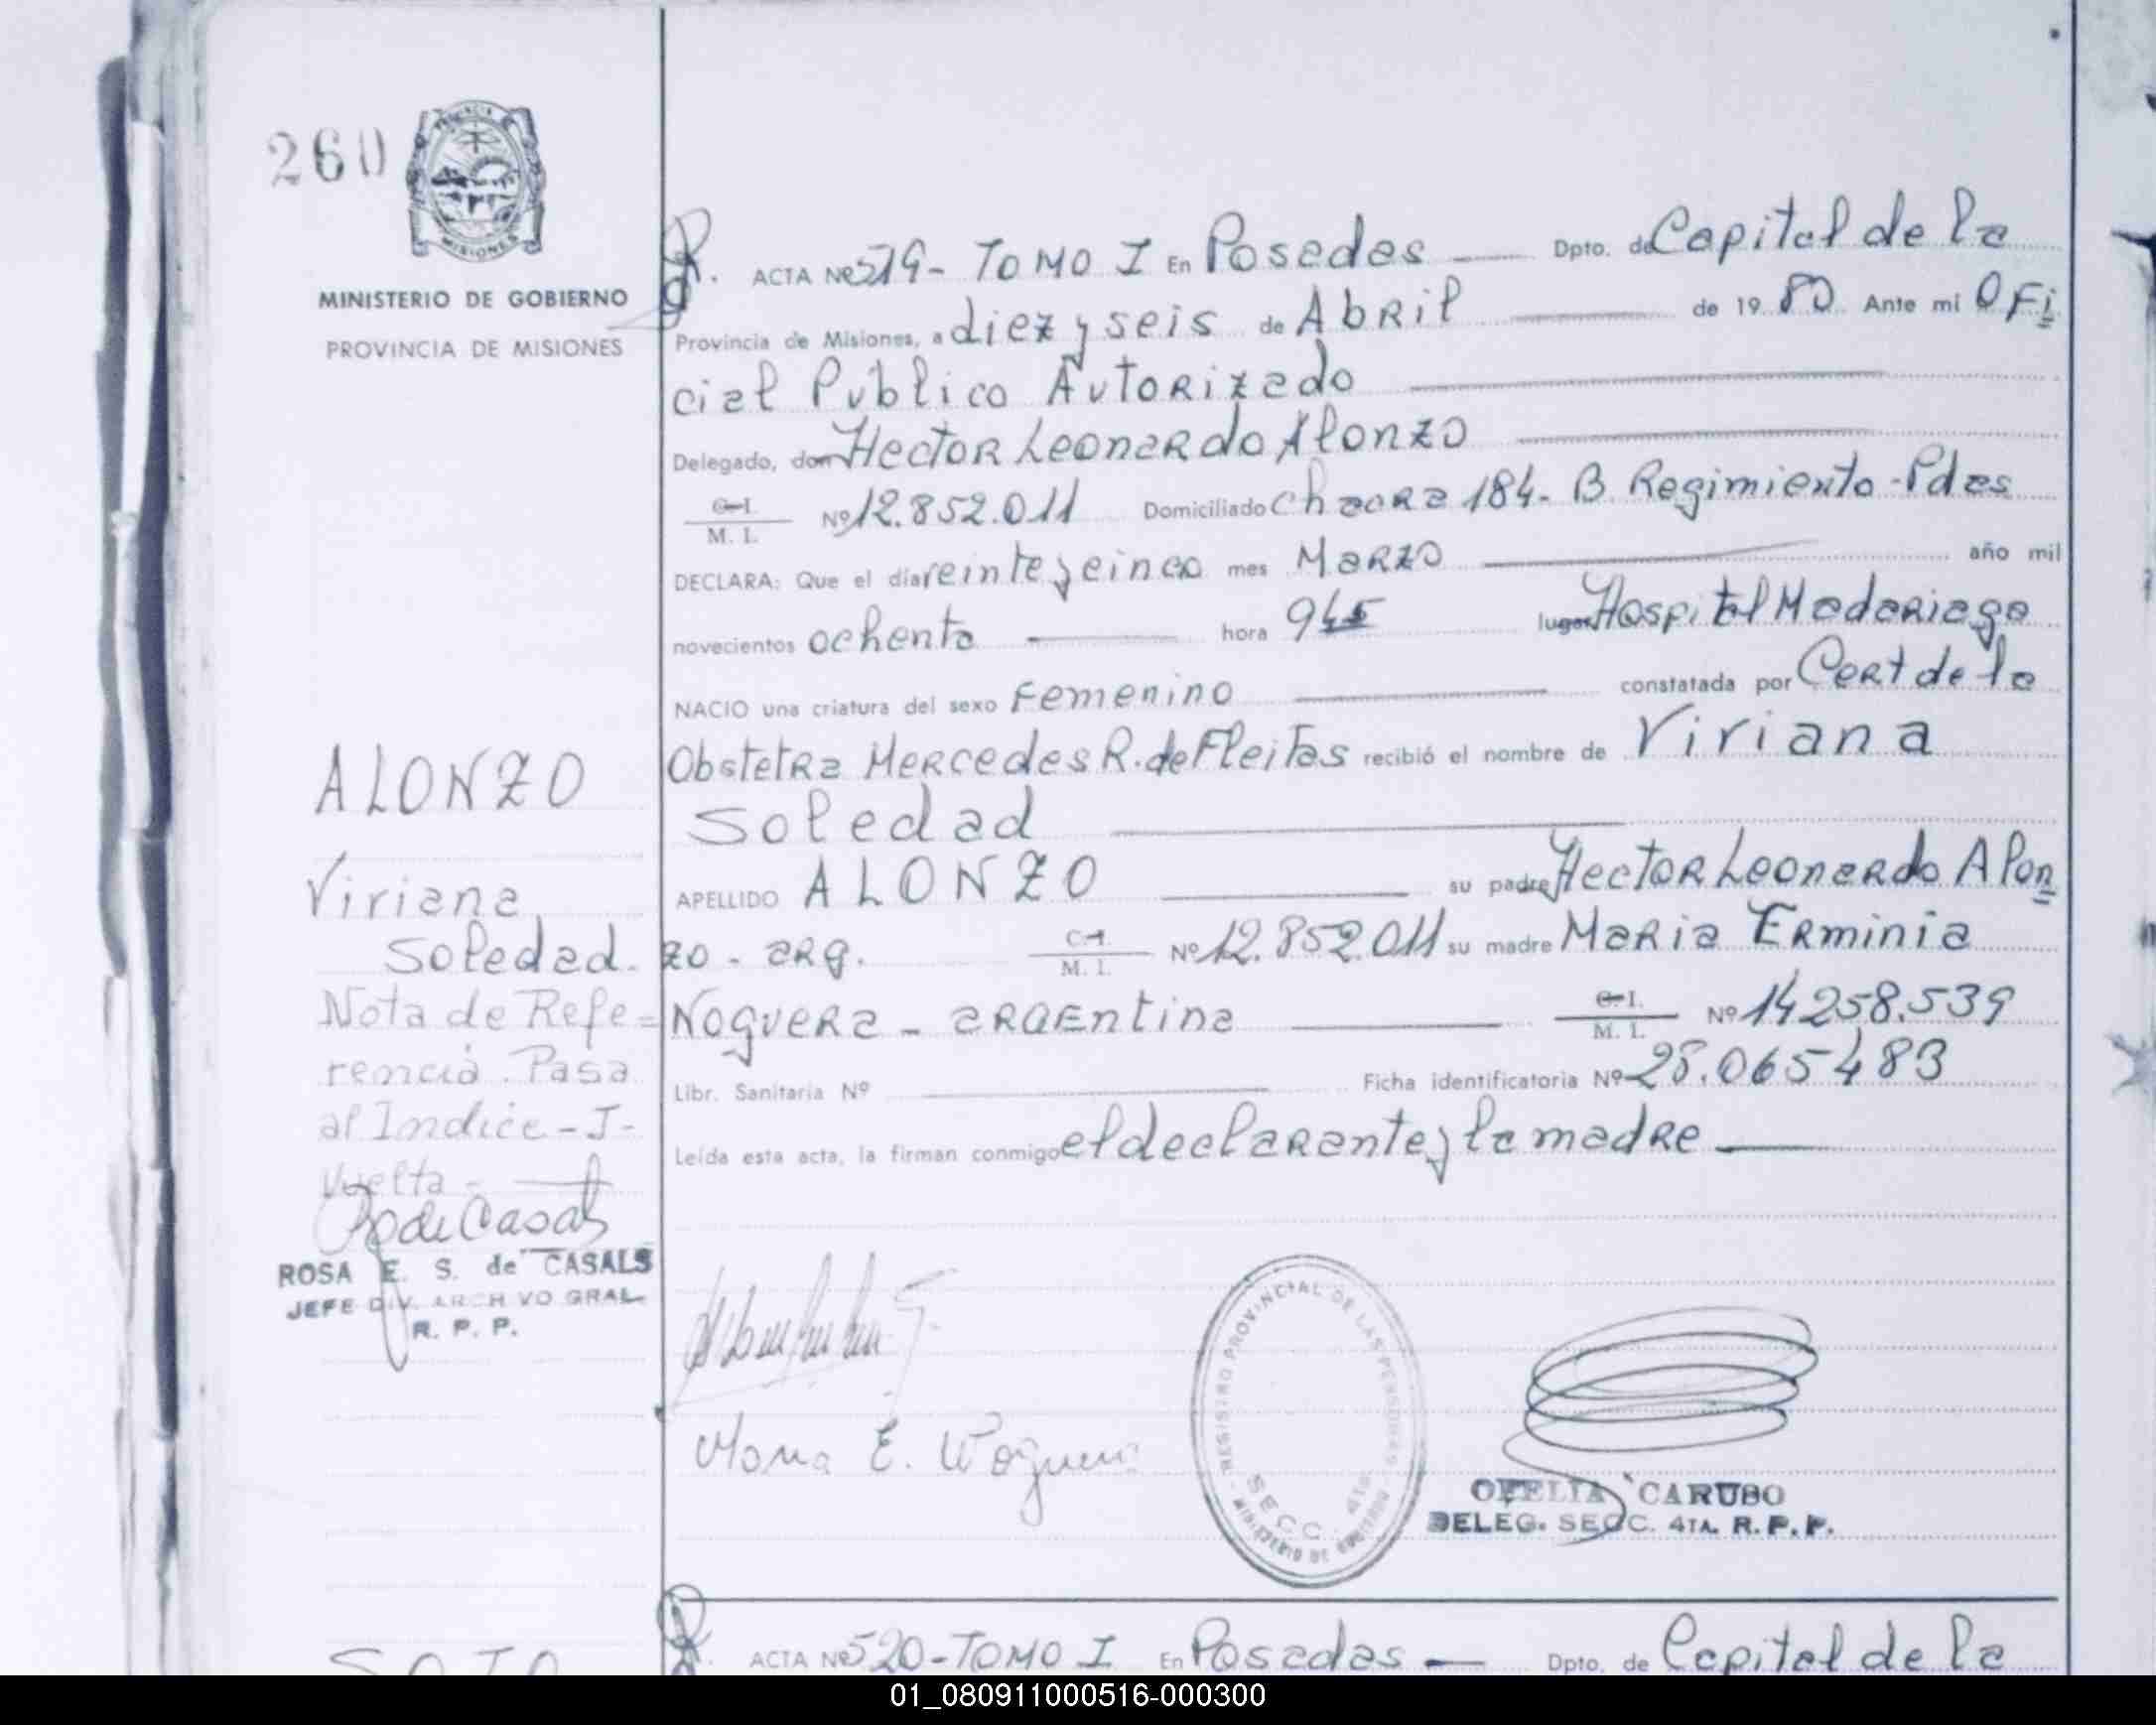 260
PROVINCIA
MISIONES
MINISTERIO DE GOBIERNO
PROVINCIA DE MISIONES
ACTA Nº 519- TOMO I En Posadas Dpto. de Capital de la
Provincia de Misiones, a diez y seis de Abril de 19 80 Ante mi OFi
cial Publico Autorizado
Delegado, don Hector Leonardo Alonzo
C.I. M. I. Nº 12.852.011 Domiciliado chacra 184- B. Regimiento-Pdas
DECLARA: Que el día veinte y cinco mes Marzo año mil
novecientos ochenta hora 945 lugar Hospital Madariaga
NACIO una criatura del sexo Femenino constatada por Cert de la
Obstetra Mercedes R. de Fleitas recibió el nombre de Viviana
Soledad
APELLIDO ALONZO su padre Hector Leonardo Alon
zo - arg. C.I. M. I. Nº 12.852.011 su madre Maria Erminia
Noguera - argentina C.I. M. I. Nº 14258.539
Libr. Sanitaria Nº Ficha identificatoria Nº 28.065483
Leída esta acta, la firman conmigo el declarante y la madre
ALONZO
Viviana
Soledad.
Nota de Refe=
rencia. Pasa
al Indice - J-
Vuelta -
R de Casals
ROSA E. S. de CASALS
JEFE DIV. ARCHIVO GRAL.
R. P. P.
Maria E. Noguera
REGISTRO PROVINCIAL DE LAS PERSONAS
SECC. 4ta.
MINISTERIO DE GOBIERNO
OFELIA CARUSO
DELEG. SECC. 4TA. R. P. P.
SOTO
ACTA Nº 520-TOMO I En Posadas Dpto. de Capital de la
01_080911000516-000300